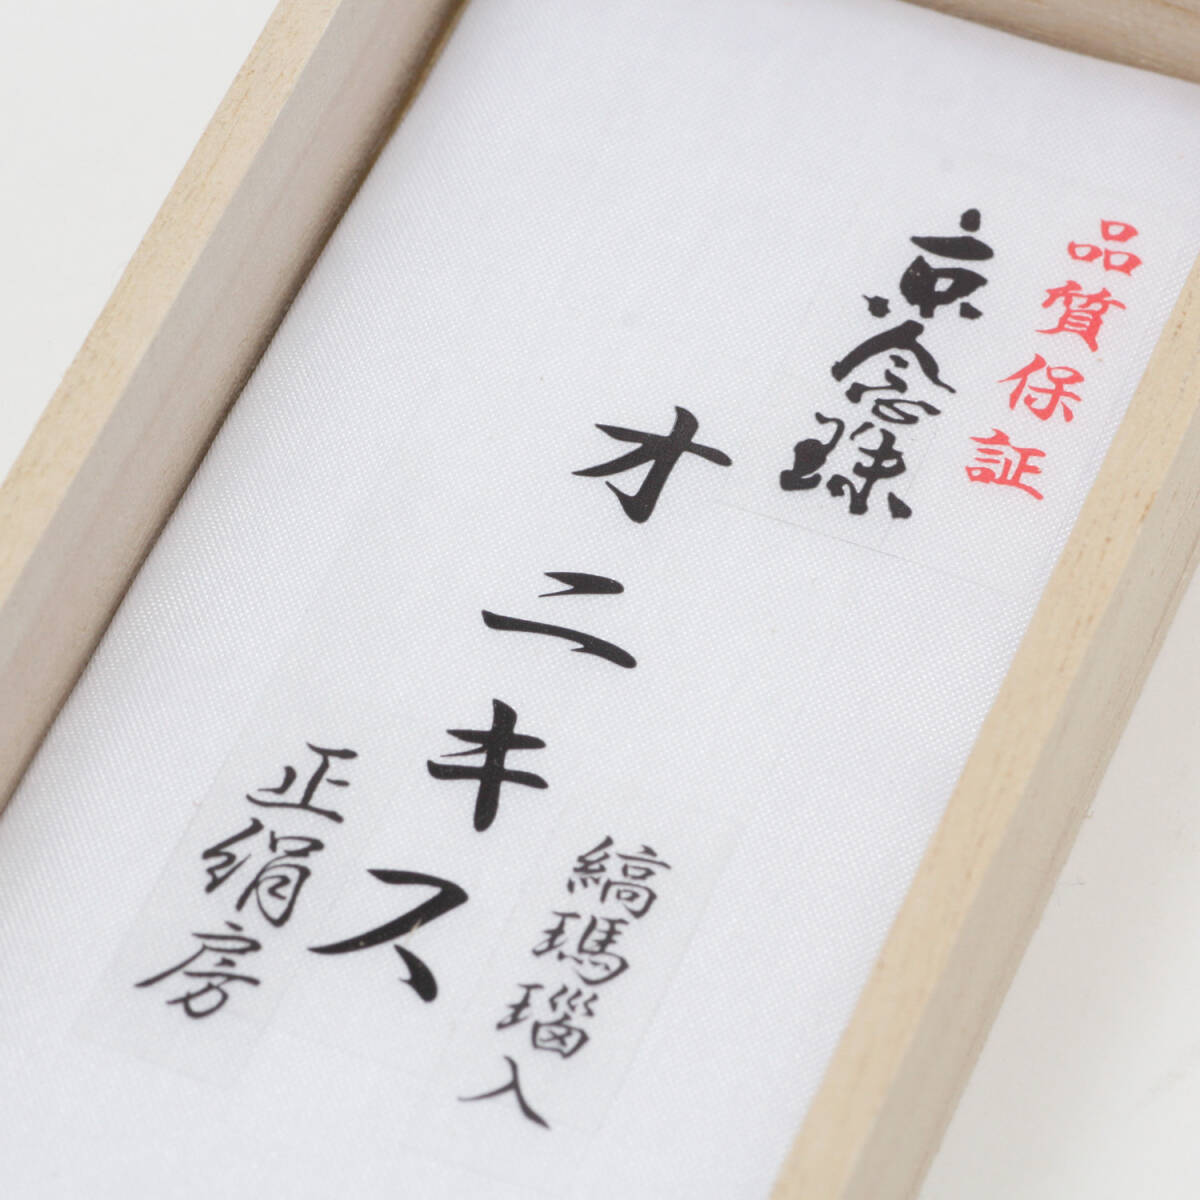 品質保証
京念珠
オニキス
縞瑪瑙入
正絹房